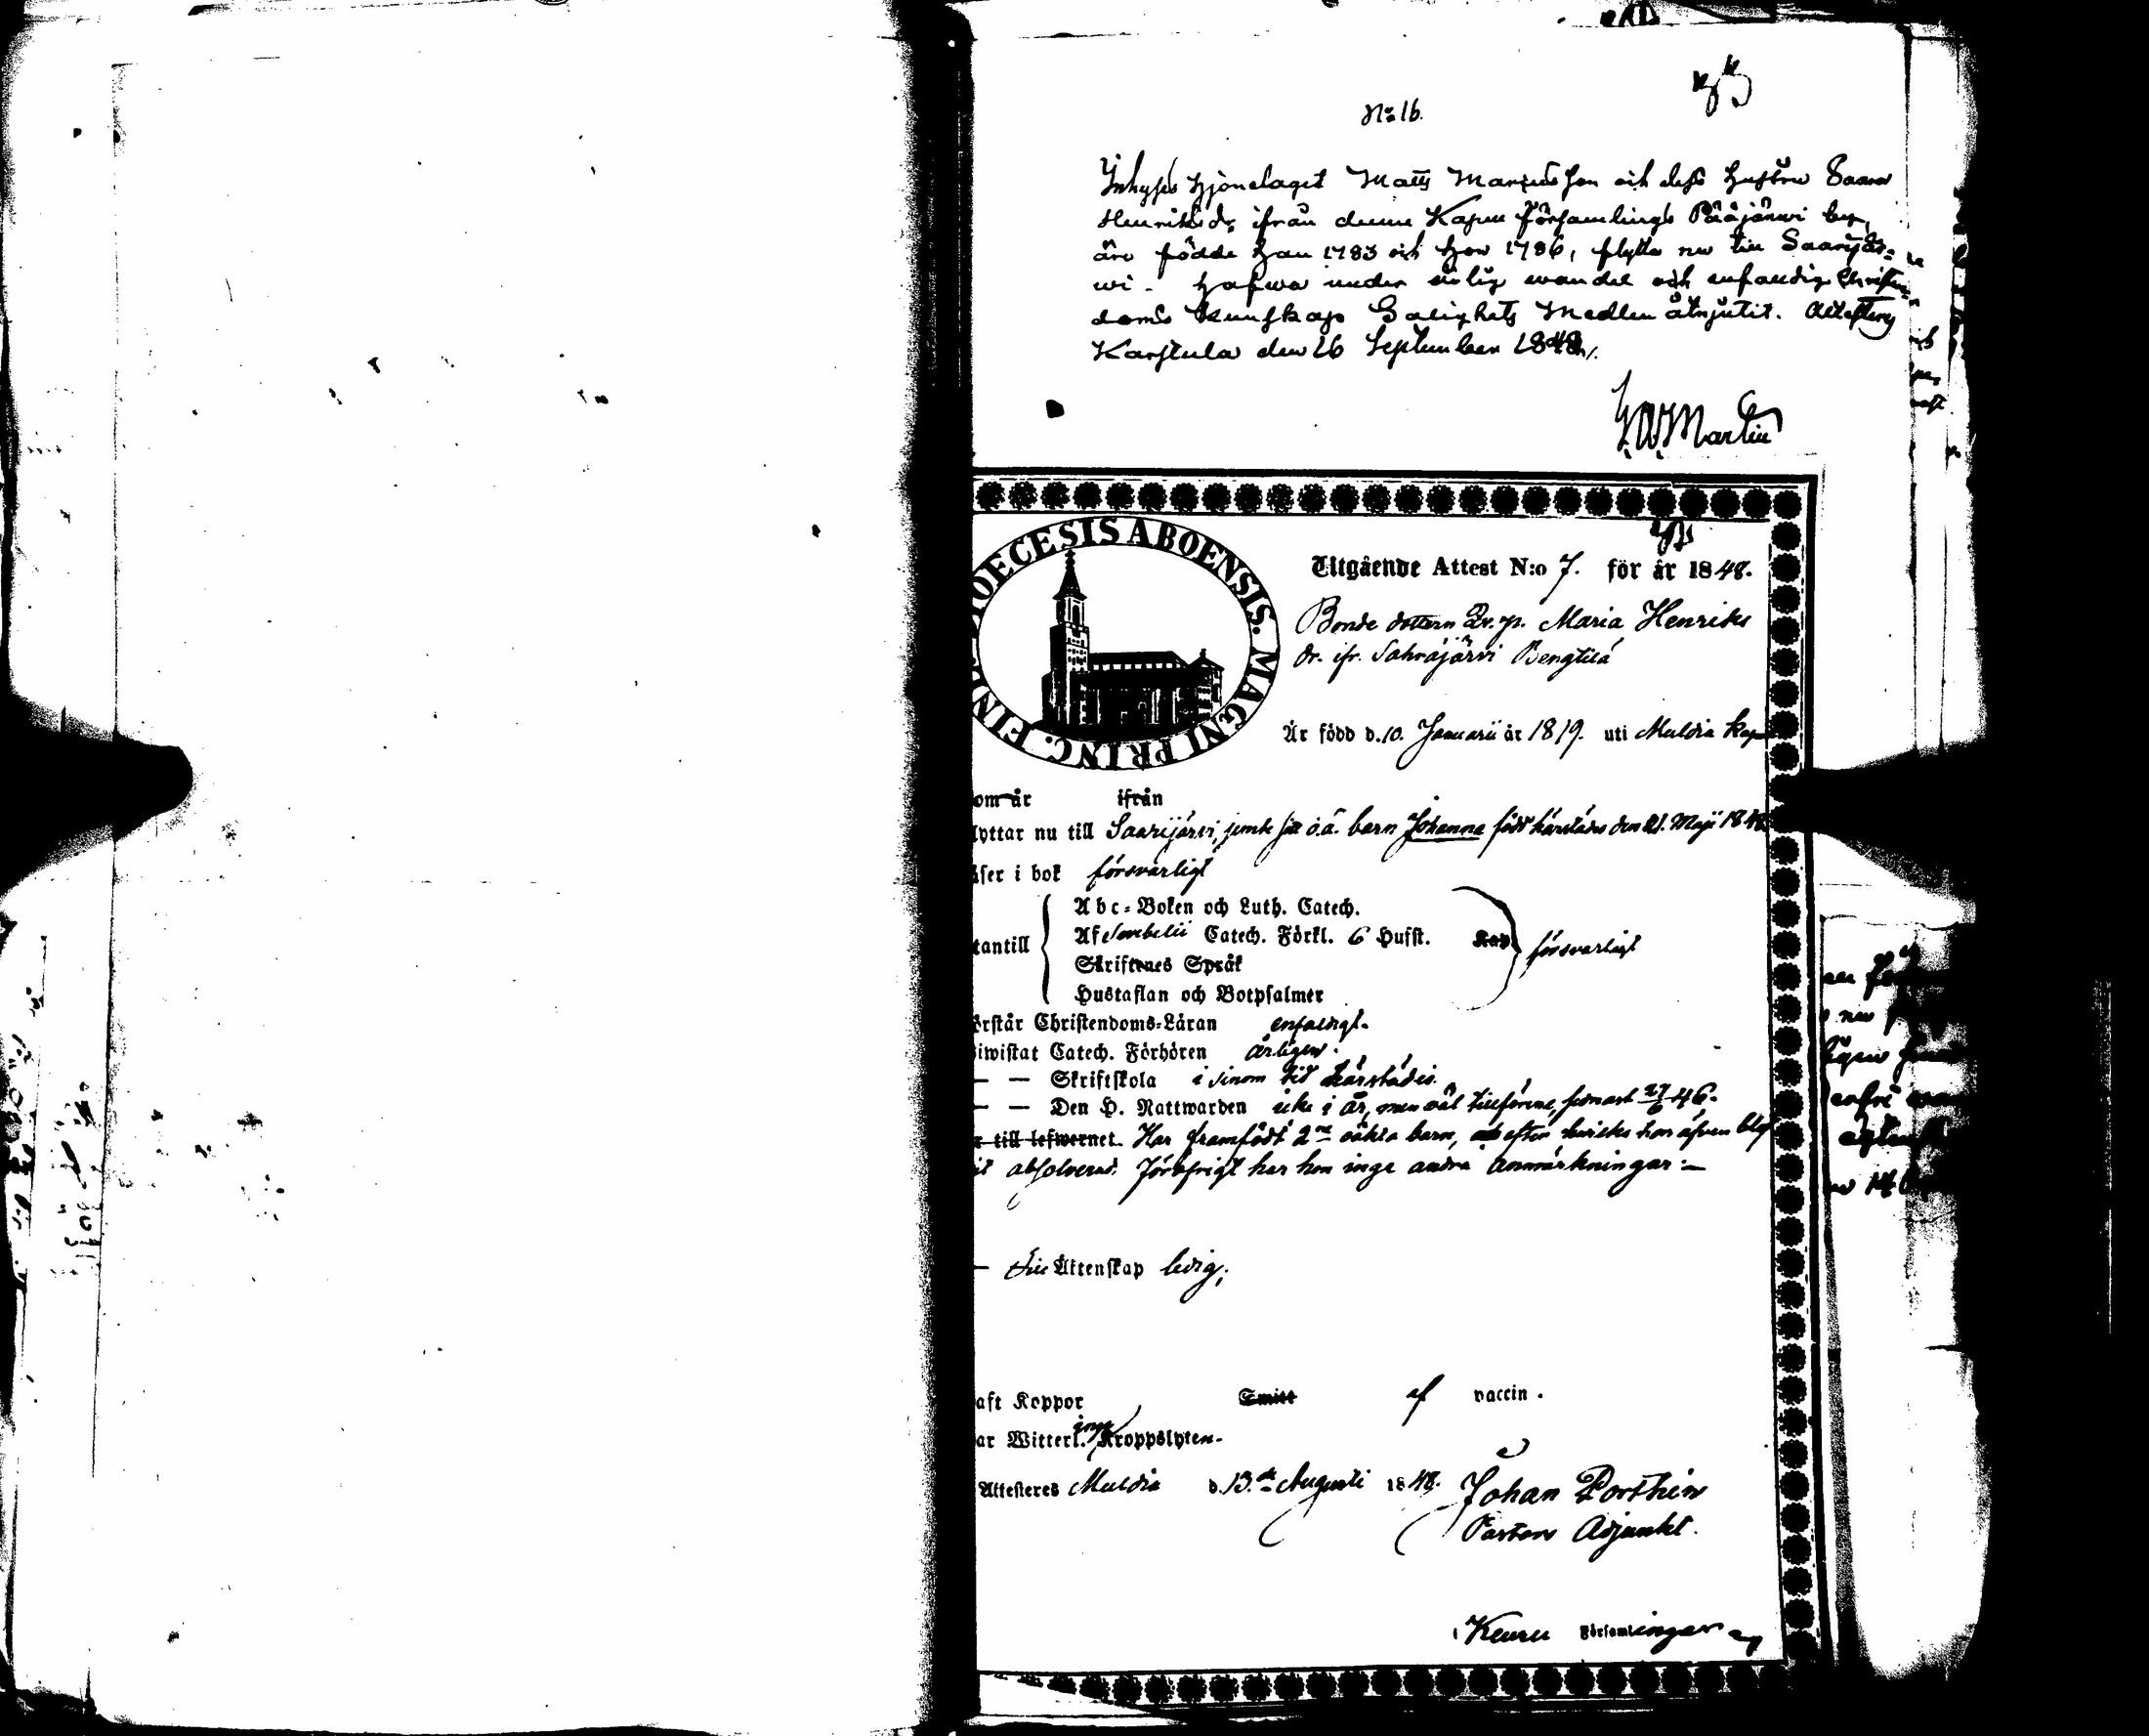 No 16.
Inhyses Hjonelaget Matts Mattsson och dess hustru Saara
Henriksdr ifrån denne Kapell församlings Pääjärwi by,
äro födde han 1783 och hon 1786, flytta nu till Saarijär=
wi. Hafwa under ärlig wandel och enfaldig Christen
doms kunskap Salighets Medlen åtnjutit. Attesteras
Karstula den 16 September 1848.
Martin
DIOECESIS ABOENSIS. MAGNI PRINC. FINL.
Utgående Attest N:o 7. för år 1848.
Bonde dottern Qv.p. Maria Henriks
dr. ifr. Sahrajärvi Bengtilä
Är född d. 10. Januarii år 1819. uti Muldia Kap
om är ifrån
lyttar nu till Saarijärvi, jemte sitt o.ä. barn Johanna född härstädes den 21. Maji 1848
äser i bok försvarligt
Abc-Boken och Luth. Catech.
tantill Af Svebelii Catech. Förkl. 6 Husst. Kap försvarligt
Skriftenes Språk
Hustaflan och Botpsalmer
örstår Christendoms-Läran enfaldigt.
iwistat Catech. Förhören årligen.
— — Skriftskola i sinom tid härstädes.
— — Den H. Nattwarden icke i år, men väl tillförene, senast 27/6 46.
r till lefwernet Har framfödt 2ne oäkta barn, och efter hvilka hon äfven blif
it absolverad. Föröfrigt har hon inga andra anmärkningar:—
— Till Äktenskap ledig;
aft Koppor Smitt af vaccin.
ar Witterl. inga Kroppslyten.
Attesteres Muldia d. 13de Augusti 1848. Johan Porthin
Pastors Adjunkt.
i Keuru Församlingar